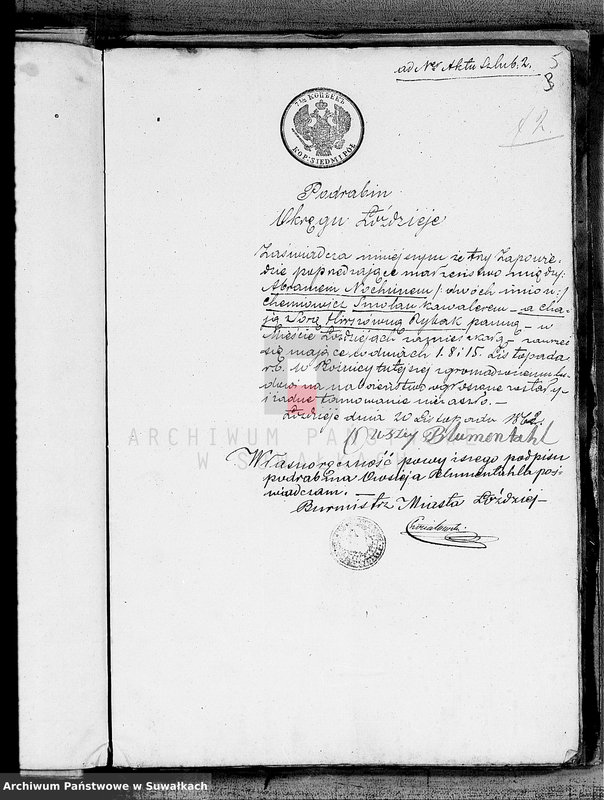 ad Nr Aktu Szlub: 2.
5
3
7½ КОПѢЕКЪ
KOP: SIEDM I PÓŁ
2.
Podrabin
Okręgu Łoździeje
Zaświadcza niniejszym że trzy Zapowie-
dzie poprzedzające małżeństwo między
Abramem Nochimem /: dwóch imion :/
Chemiowicz Smolan kawalerem – a Cha-
ją Sorą Hirszówną Rybak panną – w
Mieście Łoździejach zamieszkałą – zawrzeć
się mające w dniach 1. 8 i 15. Listopada
r.b. w Bóżnicy tutejszej zgromadzonemu lu-
dowi na nabożeństwo ogłoszone zostały
i żadne tamowanie nie zaszło. –
Łoździeje dnia 20 Listopada 1862.
Blumentahl
Własnoręczność powyższego podpisu
podrabina Owsieja Blumentahla poś-
wiadczam. –
Burmistrz Miasta Łoździej –
ARCHIWUM PAŃSTWOWE
W SUWAŁKACH
Archiwum Państwowe w Suwałkach